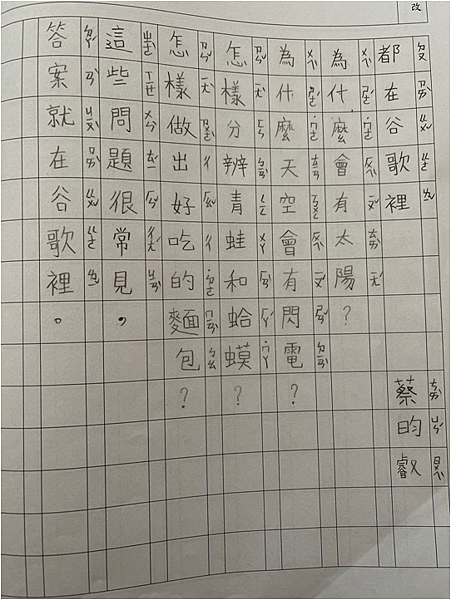 改
都在谷歌裡
蔡昀叡
為什麼會有太陽?
為什麼天空會有閃電?
怎樣分辨青蛙和蛤蟆?
怎樣做出好吃的麵包?
這些問題很常見,
答案就在谷歌裡。